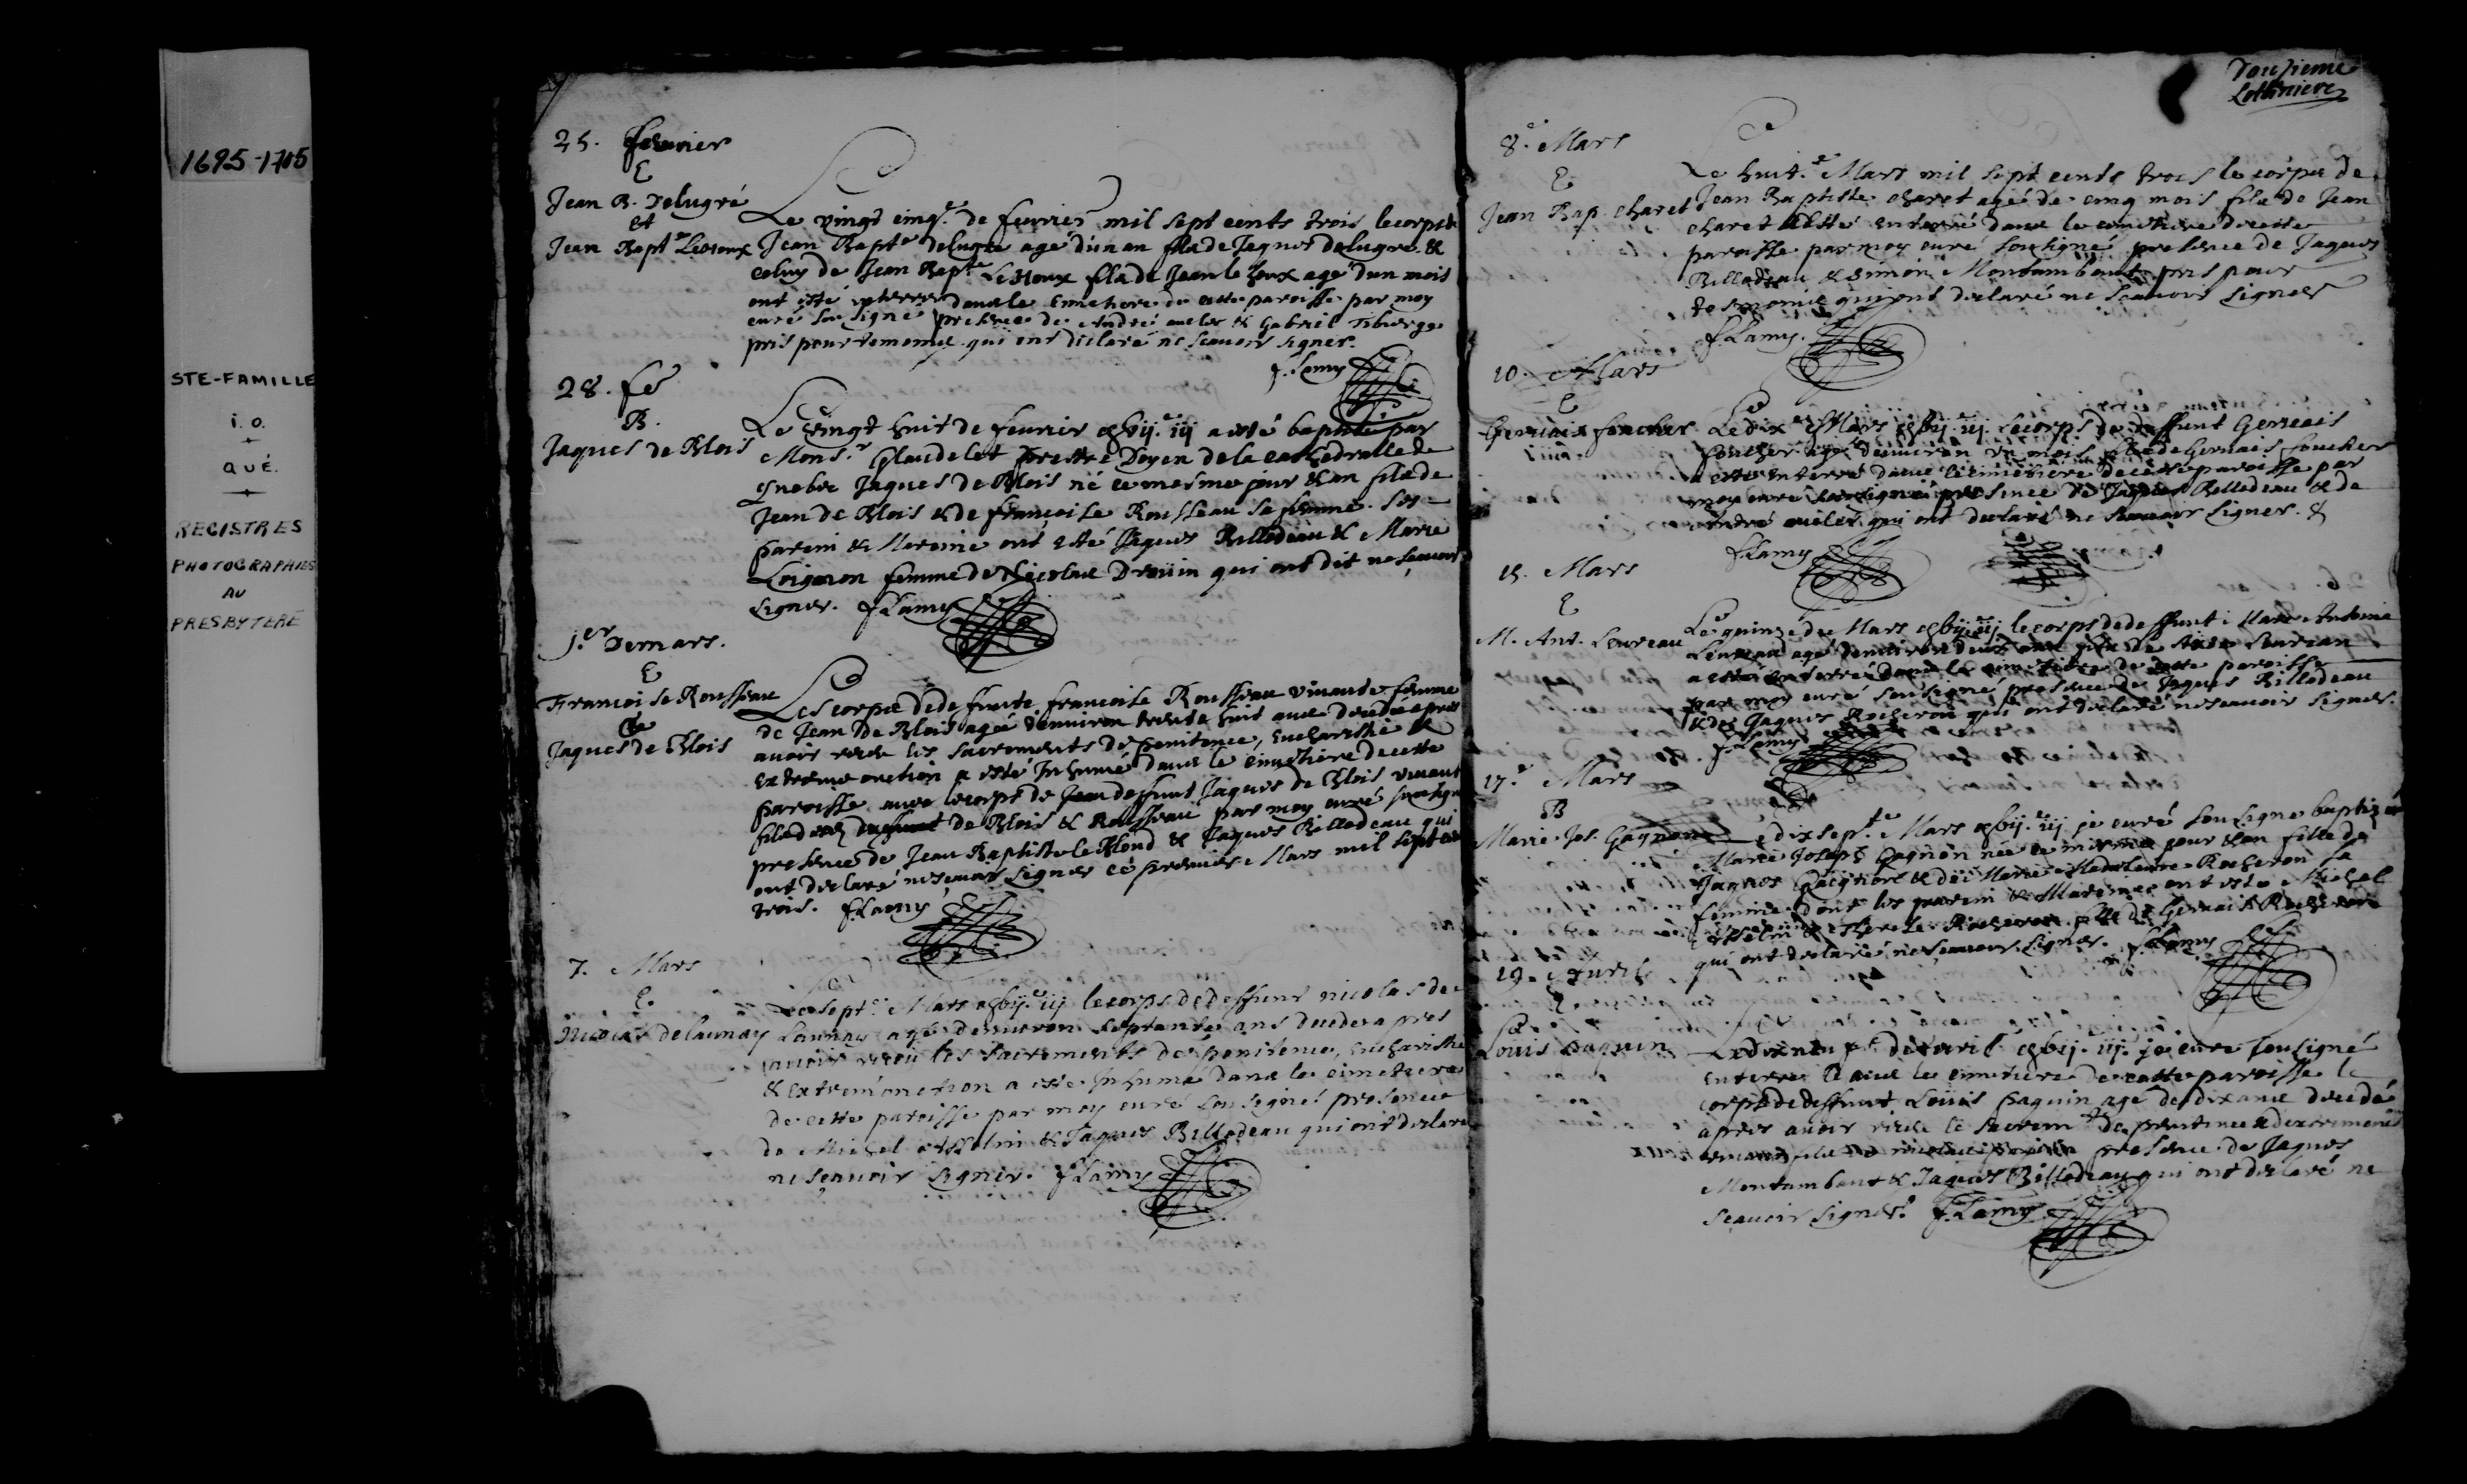 1695-1705
STE-FAMILLE
i.o.
QUÉ.
REGISTRES
PHOTOGRAPHIES
AU
PRESBYTERE
25. feurier
E
Jean B. Delugré
et
Jean Bapt.e Leroux
Le vingt cinq.e de feurier mil sept cents trois le corps de
Jean Bapt.e delugre agé d'un an fils de Jaques delugre &
celuy de Jean Bapt.e fils de Jean agé d'un mois
ont esté enterrés dans le cimetiere de cette paroisse par moy
curé sousigné presence de André & Gabriel Tiberge
pris pour temoins qui ont déclaré ne scauoir signer.
f. Lamy
28. fe
B.
Jaques de Blois
Le vingt huit de feurier gbij.c iij a esté baptisé par
Mons.r Glandelet prestre Doyen de la cathedralle de
Quebec Jaques de Blois né ce mesme jour & an fils de
Jean de Blois & de françoise Rousseau sa femme. ses
parein & Mareine ont esté Jaques Billodeau & Marie
Loignon femme de Nicolas Droüin qui ont dit ne scauoir
signer. f. Lamy
j.er De mars.
E
Françoise Rousseau
&
Jaques de Blois
Les corps de deffunte françoise Rousseau viuante femme
de Jean de Blois agée d'enuiron trente huit ans decedée apres
auoir receu les sacrements de penitence, eucharistie &
extreme onction a esté Inhumé dans le cimetiere de cette
paroisse auec le corps de deffunt Jaques de Blois viuant
fils de Blois & Rousseau par moy curé sousigné
presence de Jean Baptiste le Blond & Jaques Billodeau qui
ont declaré ne scauoir signer ce premier Mars mil sept cent
trois. f. Lamy
7. Mars
E.
Nicolas delaunay
Le sept.e Mars gbij.c iij le corps de deffunt nicolas de
Launay agé d'enuiron septante ans decedé apres
auoir receu les sacrements de penitence, eucharistie
& extremonction a esté Inhumé dans le cimetiere
de cette paroisse par moy curé sousigné presence
de Michel Asselin & Jaques Billodeau qui ont declaré
ne scauoir signer. f. Lamy
Douzieme
Lotbiniere
8.e Mars
E
Jean Bap. charet
Le huit.e Mars mil sept cents trois le corps de
Jean Baptiste charet agé de cinq mois fils de Jean
charet a esté enterré dans le cimetiere de cette
paroisse par moy curé sousigné presence de Jaques
Billodeau & Simon Montambaut pris pour
temoins qui ont declaré ne scauoir signer
f. Lamy.
10. Mars
E
Geruais foucher
Le dix.e Mars gbij.c iij le corps de deffunt Geruais
foucher agé d'enuiron un mois fils de Geruais foucher
a esté enterré dans le cimetiere de cette paroisse par
moy curé sousigné presence de Jaques Billodeau & de
André qui ont declaré ne scauoir signer. &
f. Lamy
15. Mars
E
M. Ant. Leureau
Le quinze de Mars gbij.c iij le corps de deffunt Marc Antoine
Leureau agé d'enuiron deux ans fils de Leureau
a esté enterré dans le cimetiere de cette paroisse
par moy curé sousigné presence de Jaques Billodeau
& de Jaques Rocheron qui ont declaré ne scauoir signer.
f. Lamy
17.e Mars
B
Marie Jos. Gagnon
Le dix sept.e Mars gbij.c iij je curé sousigné baptizé
Marie Joseph Gagnon née ce mesme jour & an fille de
Jaques Gagnon & de Marie Madeleine Rocheron sa
femme dont les parein & Mareine ont esté Michel
Asselin & Therese Rocheron fille de Geruais Rocheron
qui ont declaré ne scauoir signer. f. Lamy
19. Auril
E
Louis paquin
Le dix neuf d'auril gbij.c iij. je curé sousigné
enterré dans le cimetiere de cette paroisse le
corps de deffunt Louis paquin agé de dix ans decedé
apres auoir receu le sacrem.t de penitence & d'extremon
viuant fils de nicolas paquin presence de Jaques
Montambaut & Jaques Billodeau qui ont declaré ne
scauoir signer. f. Lamy